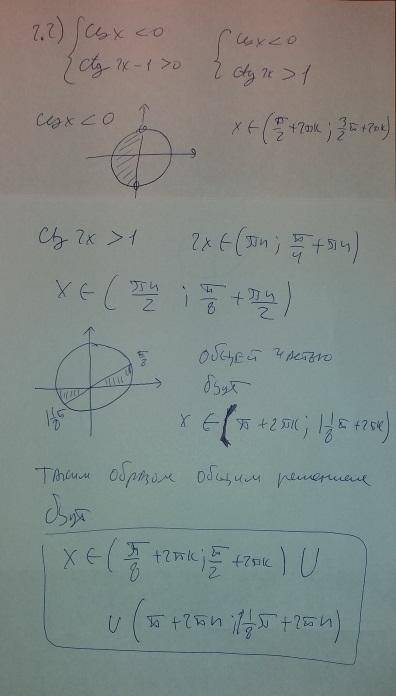 2.2) { cos x < 0 { cos x < 0
ctg 2x - 1 > 0 ctg 2x > 1
cos x < 0 x ∈ (π/2 + 2πk ; 3/2 π + 2πk)
ctg 2x > 1 2x ∈ (πn ; π/4 + πn)
x ∈ ( πn/2 ; π/8 + πn/2 )
π/8
общей частью
будет
1 1/8 π
x ∈ ( π + 2πk ; 1 1/8 π + 2πk)
таким образом общим решением
будет
x ∈ ( π/8 + 2πk ; π/2 + 2πk ) U
U ( π + 2πn ; 1 1/8 π + 2πn )